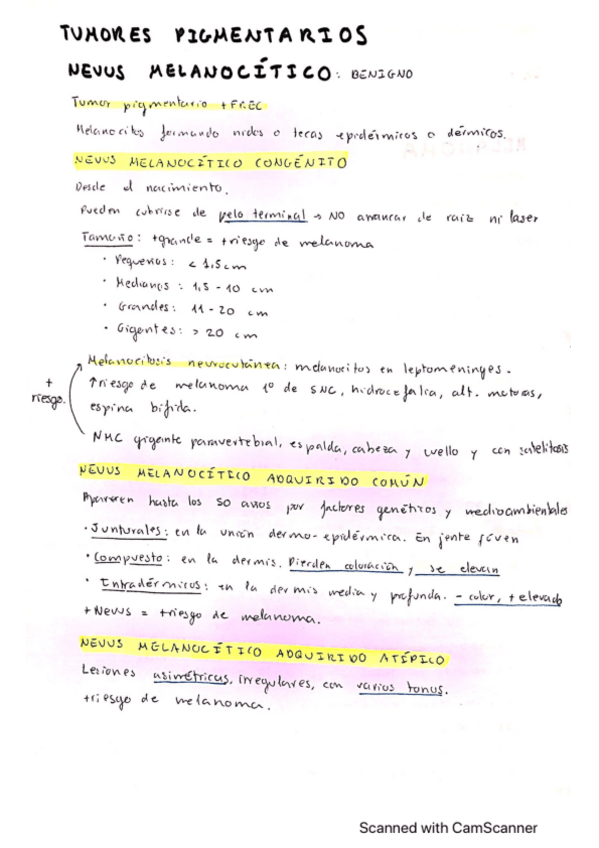 TUMORES PIGMENTARIOS
NEVUS MELANOCÍTICO: BENIGNO
Tumor pigmentario + FREC
Melanocitos formando nidos o tecas epidérmicos o dérmicos.
NEVUS MELANOCÍTICO CONGÉNITO
Desde el nacimiento.
Pueden cubrirse de pelo terminal → NO arrancar de raíz ni laser
Tamaño: +grande = +riesgo de melanoma
· Pequeños: < 1,5 cm
· Medianos: 1,5 - 10 cm
· Grandes: 11 - 20 cm
· Gigentes: > 20 cm
Melanocitosis neurocutánea: melanocitos en leptomeninges.
↑riesgo de melanoma 1º de SNC, hidrocefalia, alt. motoras,
espina bífida.
+ riesgo.
NMC gigante paravertebral, espalda, cabeza y cuello y con satelitosis
NEVUS MELANOCÍTICO ADQUIRIDO COMÚN
Aparecen hasta los 50 años por factores genéticos y medioambientales
· Junturales: en la unión dermo-epidérmica. En jente jóven
· Compuesto: en la dermis. Pierden coloración y se elevan
· Intradérmicos: en la dermis media y profunda. - color, + elevado
+ Nevus = +riesgo de melanoma.
NEVUS MELANOCÍTICO ADQUIRIDO ATÍPICO
Lesiones asimétricas, irregulares, con varios tonos.
+riesgo de melanoma.
Scanned with CamScanner